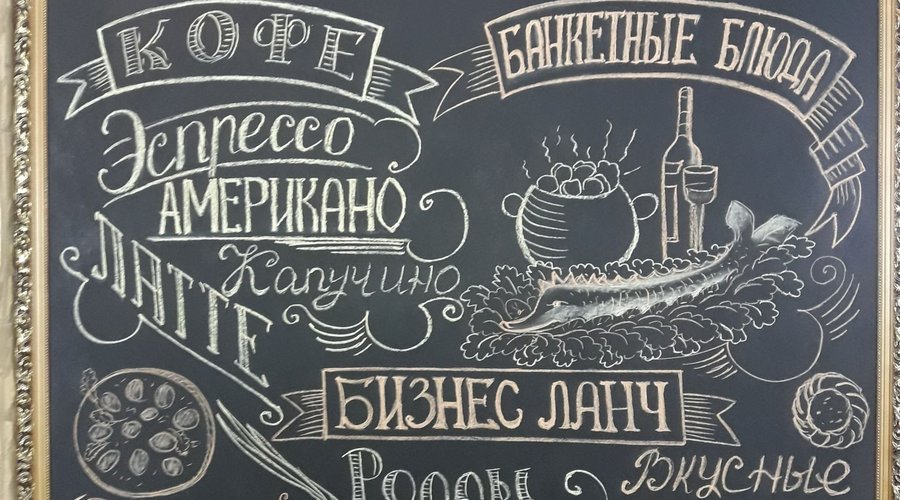 КОФЕ
Эспрессо
АМЕРИКАНО
Капучино
ЛАТТЕ
БАНКЕТНЫЕ БЛЮДА
БИЗНЕС ЛАНЧ
Роллы
Вкусные